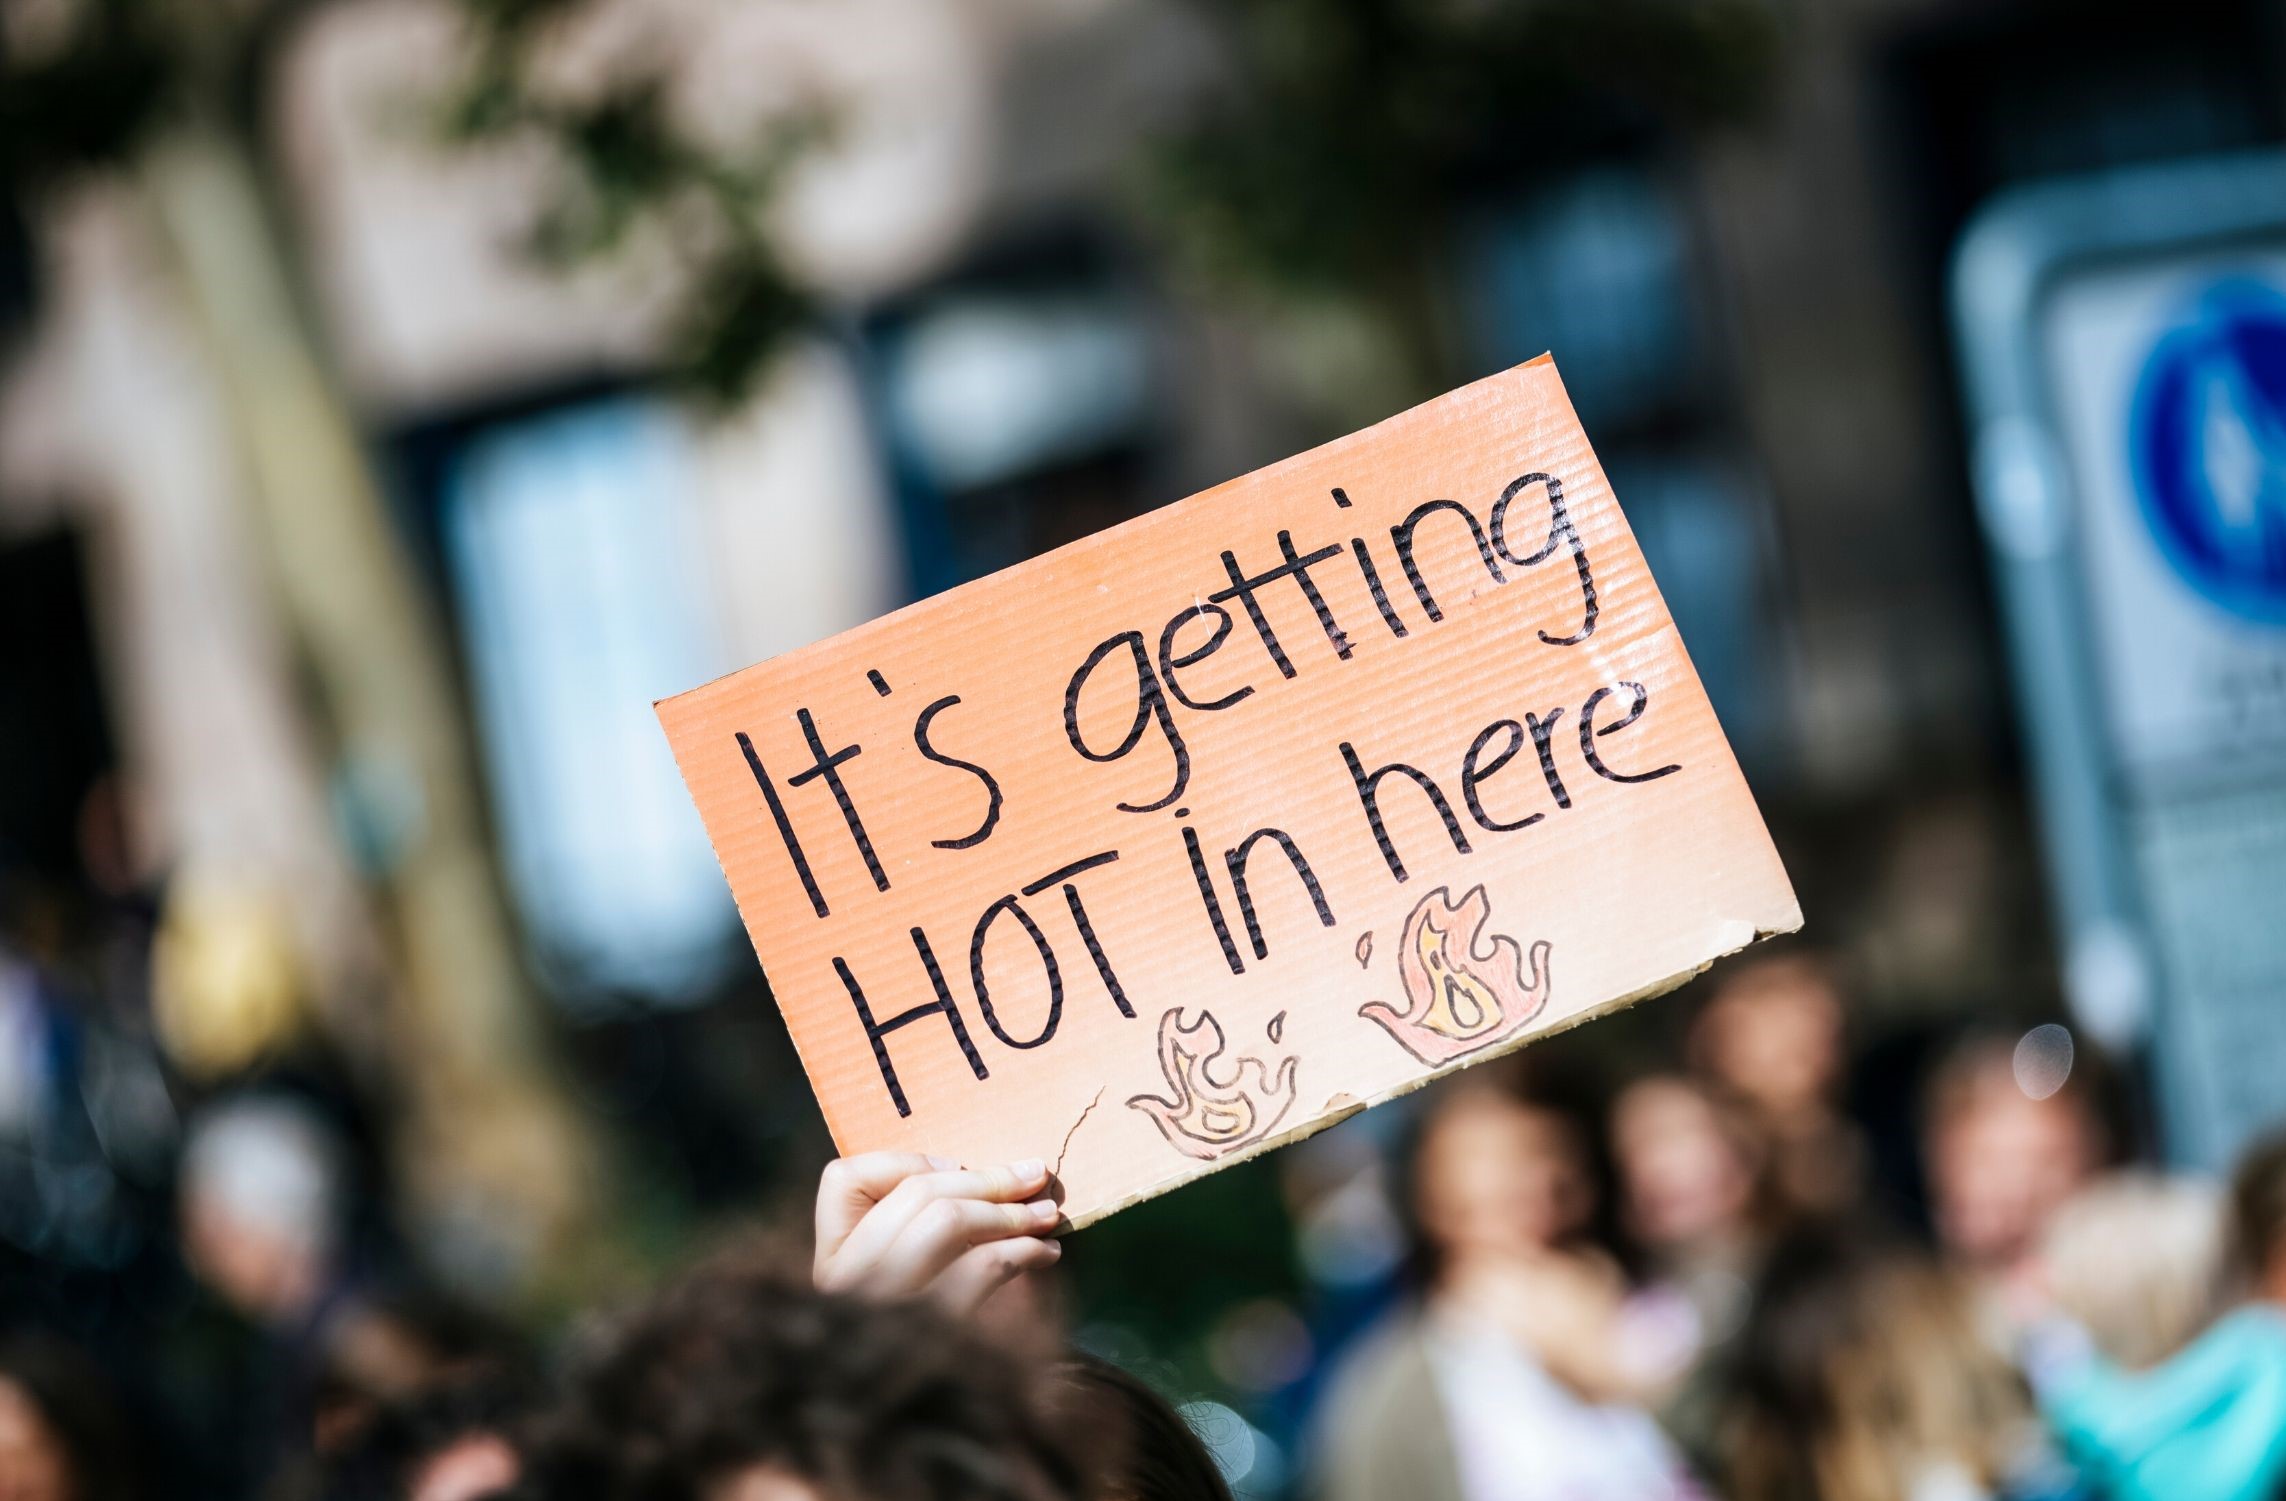 It's getting
HOT in here